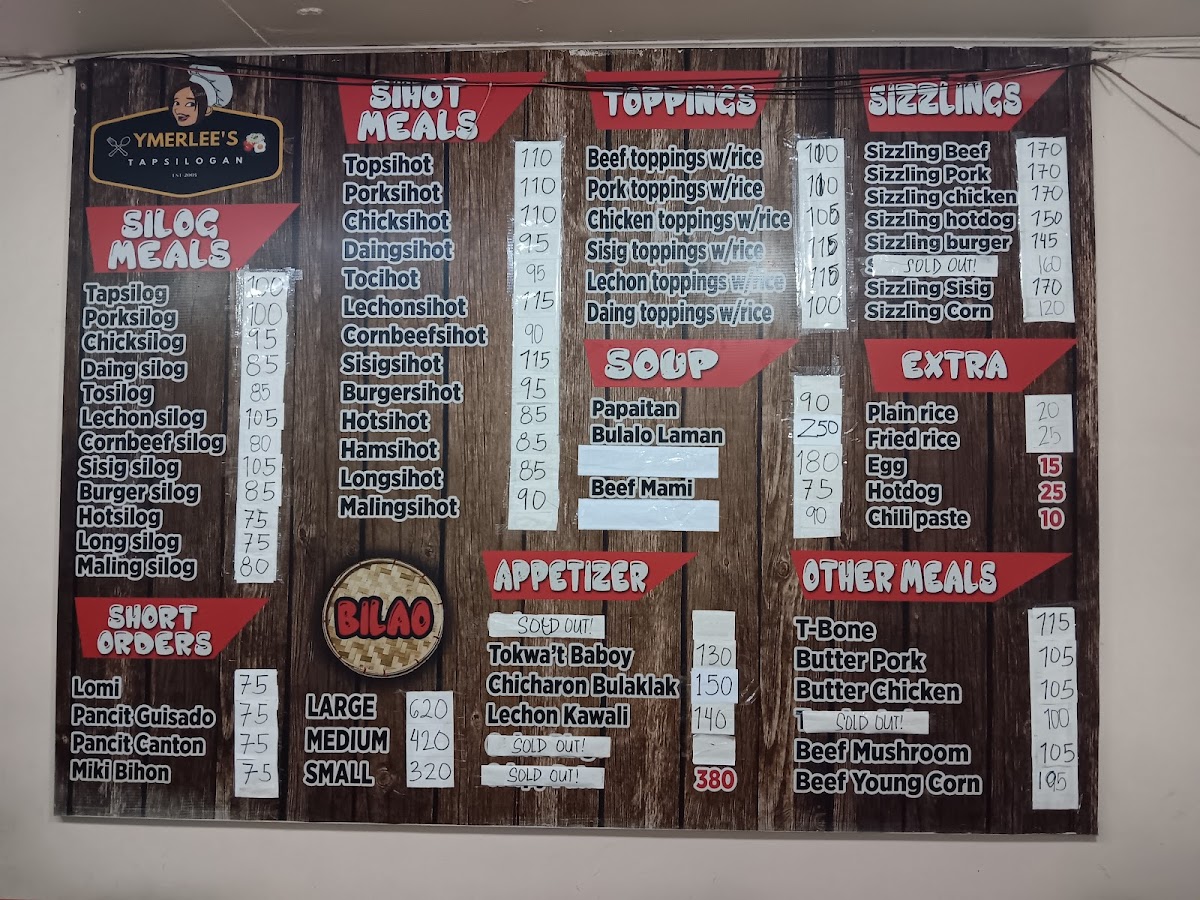 YMERLEE'S
TAPSILOGAN
SILOG
MEALS
Tapsilog 100
Porksilog 100
Chicksilog 95
Daing silog 85
Tosilog 85
Lechon silog 105
Cornbeef silog 80
Sisig silog 105
Burger silog 85
Hotsilog 75
Long silog 75
Maling silog 80
SHORT
ORDERS
Lomi 75
Pancit Guisado 75
Pancit Canton 75
Miki Bihon 75
SIHOT
MEALS
Topsihot 110
Porksihot 110
Chicksihot 110
Daingsihot 95
Tocihot 95
Lechonsihot 115
Cornbeefsihot 90
Sisigsihot 115
Burgersihot 95
Hotsihot 85
Hamsihot 85
Longsihot 85
Malingsihot 90
BILAO
LARGE 620
MEDIUM 420
SMALL 320
TOPPINGS
Beef toppings w/rice
Pork toppings w/rice
Chicken toppings w/rice 105
Sisig toppings w/rice 115
Lechon toppings w/rice 115
Daing toppings w/rice 100
SOUP
Papaitan 90
Bulalo Laman 250
180
Beef Mami 75
90
APPETIZER
SOLD OUT!
Tokwa't Baboy 130
Chicharon Bulaklak 150
Lechon Kawali 140
SOLD OUT! -
SOLD OUT! 380
SIZZLINGS
Sizzling Beef 170
Sizzling Pork 170
Sizzling chicken 170
Sizzling hotdog 150
Sizzling burger 145
SOLD OUT! 160
Sizzling Sisig 170
Sizzling Corn 120
EXTRA
Plain rice 20
Fried rice 25
Egg 15
Hotdog 25
Chili paste 10
OTHER MEALS
T-Bone 115
Butter Pork 105
Butter Chicken 105
SOLD OUT! 100
Beef Mushroom 105
Beef Young Corn 105